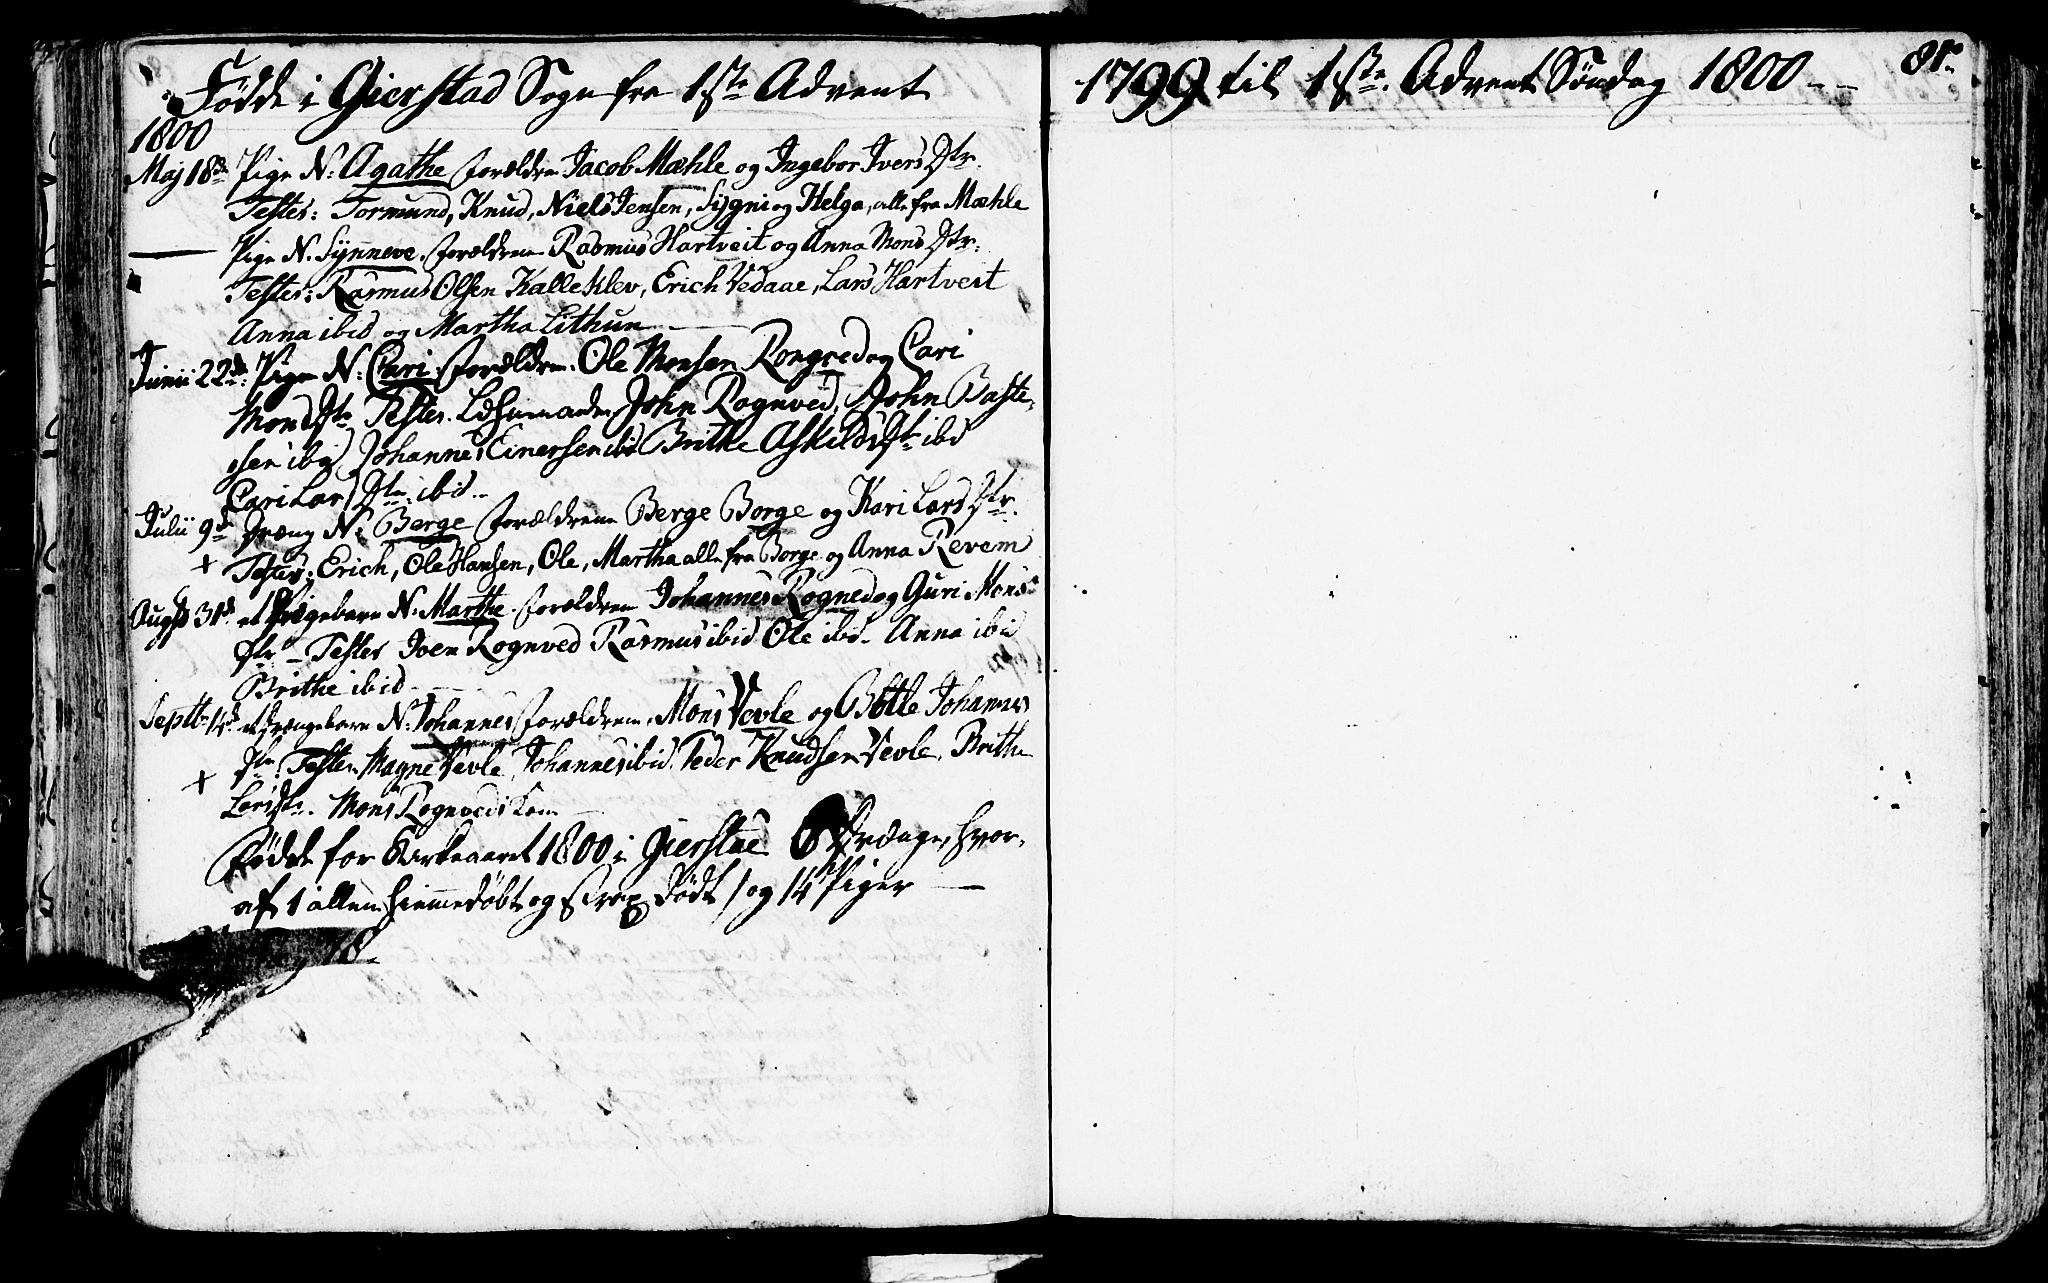 Fødde i Gierstad Sogn fra 1ste Advent 1799 til 1ste Advents Søndag 1800
81
1800
Maj 18de Pige N: Agathe forældre Jacob Mæhle og Ingebor Ivers Dtr.
Testes: Tormund, Knud, Niels Jensen, Sygni og Helga, alle fra Mæhle
Pige N. Synneve, forældrene Rasmus Hartveit og Anna Mons Dtr:
Testes: Rasmus Olsen Kalleklev, Erich Vedaae, Lars Hartveit
Anna ibid og Martha Lithun
Junii 22de: Pige N: Cari forældre: Ole Monsen Rongved og Cari
Mons Dtr Testes. John Rognved, John Baste-
sen ibid Johannes Einersen ibid Brithe Askilds Dtr ibid
Cari Lars Dtr. ibid..
Julii 9de Dræng N: Berge forældrene Berge Borge og Kari Lars Dtr.
+ Testes: Erich, Ole Hansen, Ole, Martha alle fra Borge og Anna Revem
Augst 31de et Pigebarn N: Marthe forældrene Johannes Rogned og Guri Mons
Dtr - Testes Joen Rognved Rasmus ibid Ole ibid. Anna ibid
Brithe ibid
Septbr 14de et Drængebarn N: Johannes forældrene. Mons Vevle og Botle Johannes
+ Dtr: Testes Magne Vevle, Johannes ibid. Peder Knudsen Vevle, Brithe
Larsdtr. Mons Rognveds Kone
Fødde for Kirkeaaret 1800 i Gierstad 6 Drænge, hvor-
af 1 allene hiemmedøbt og strax død og 14 Piger
18.